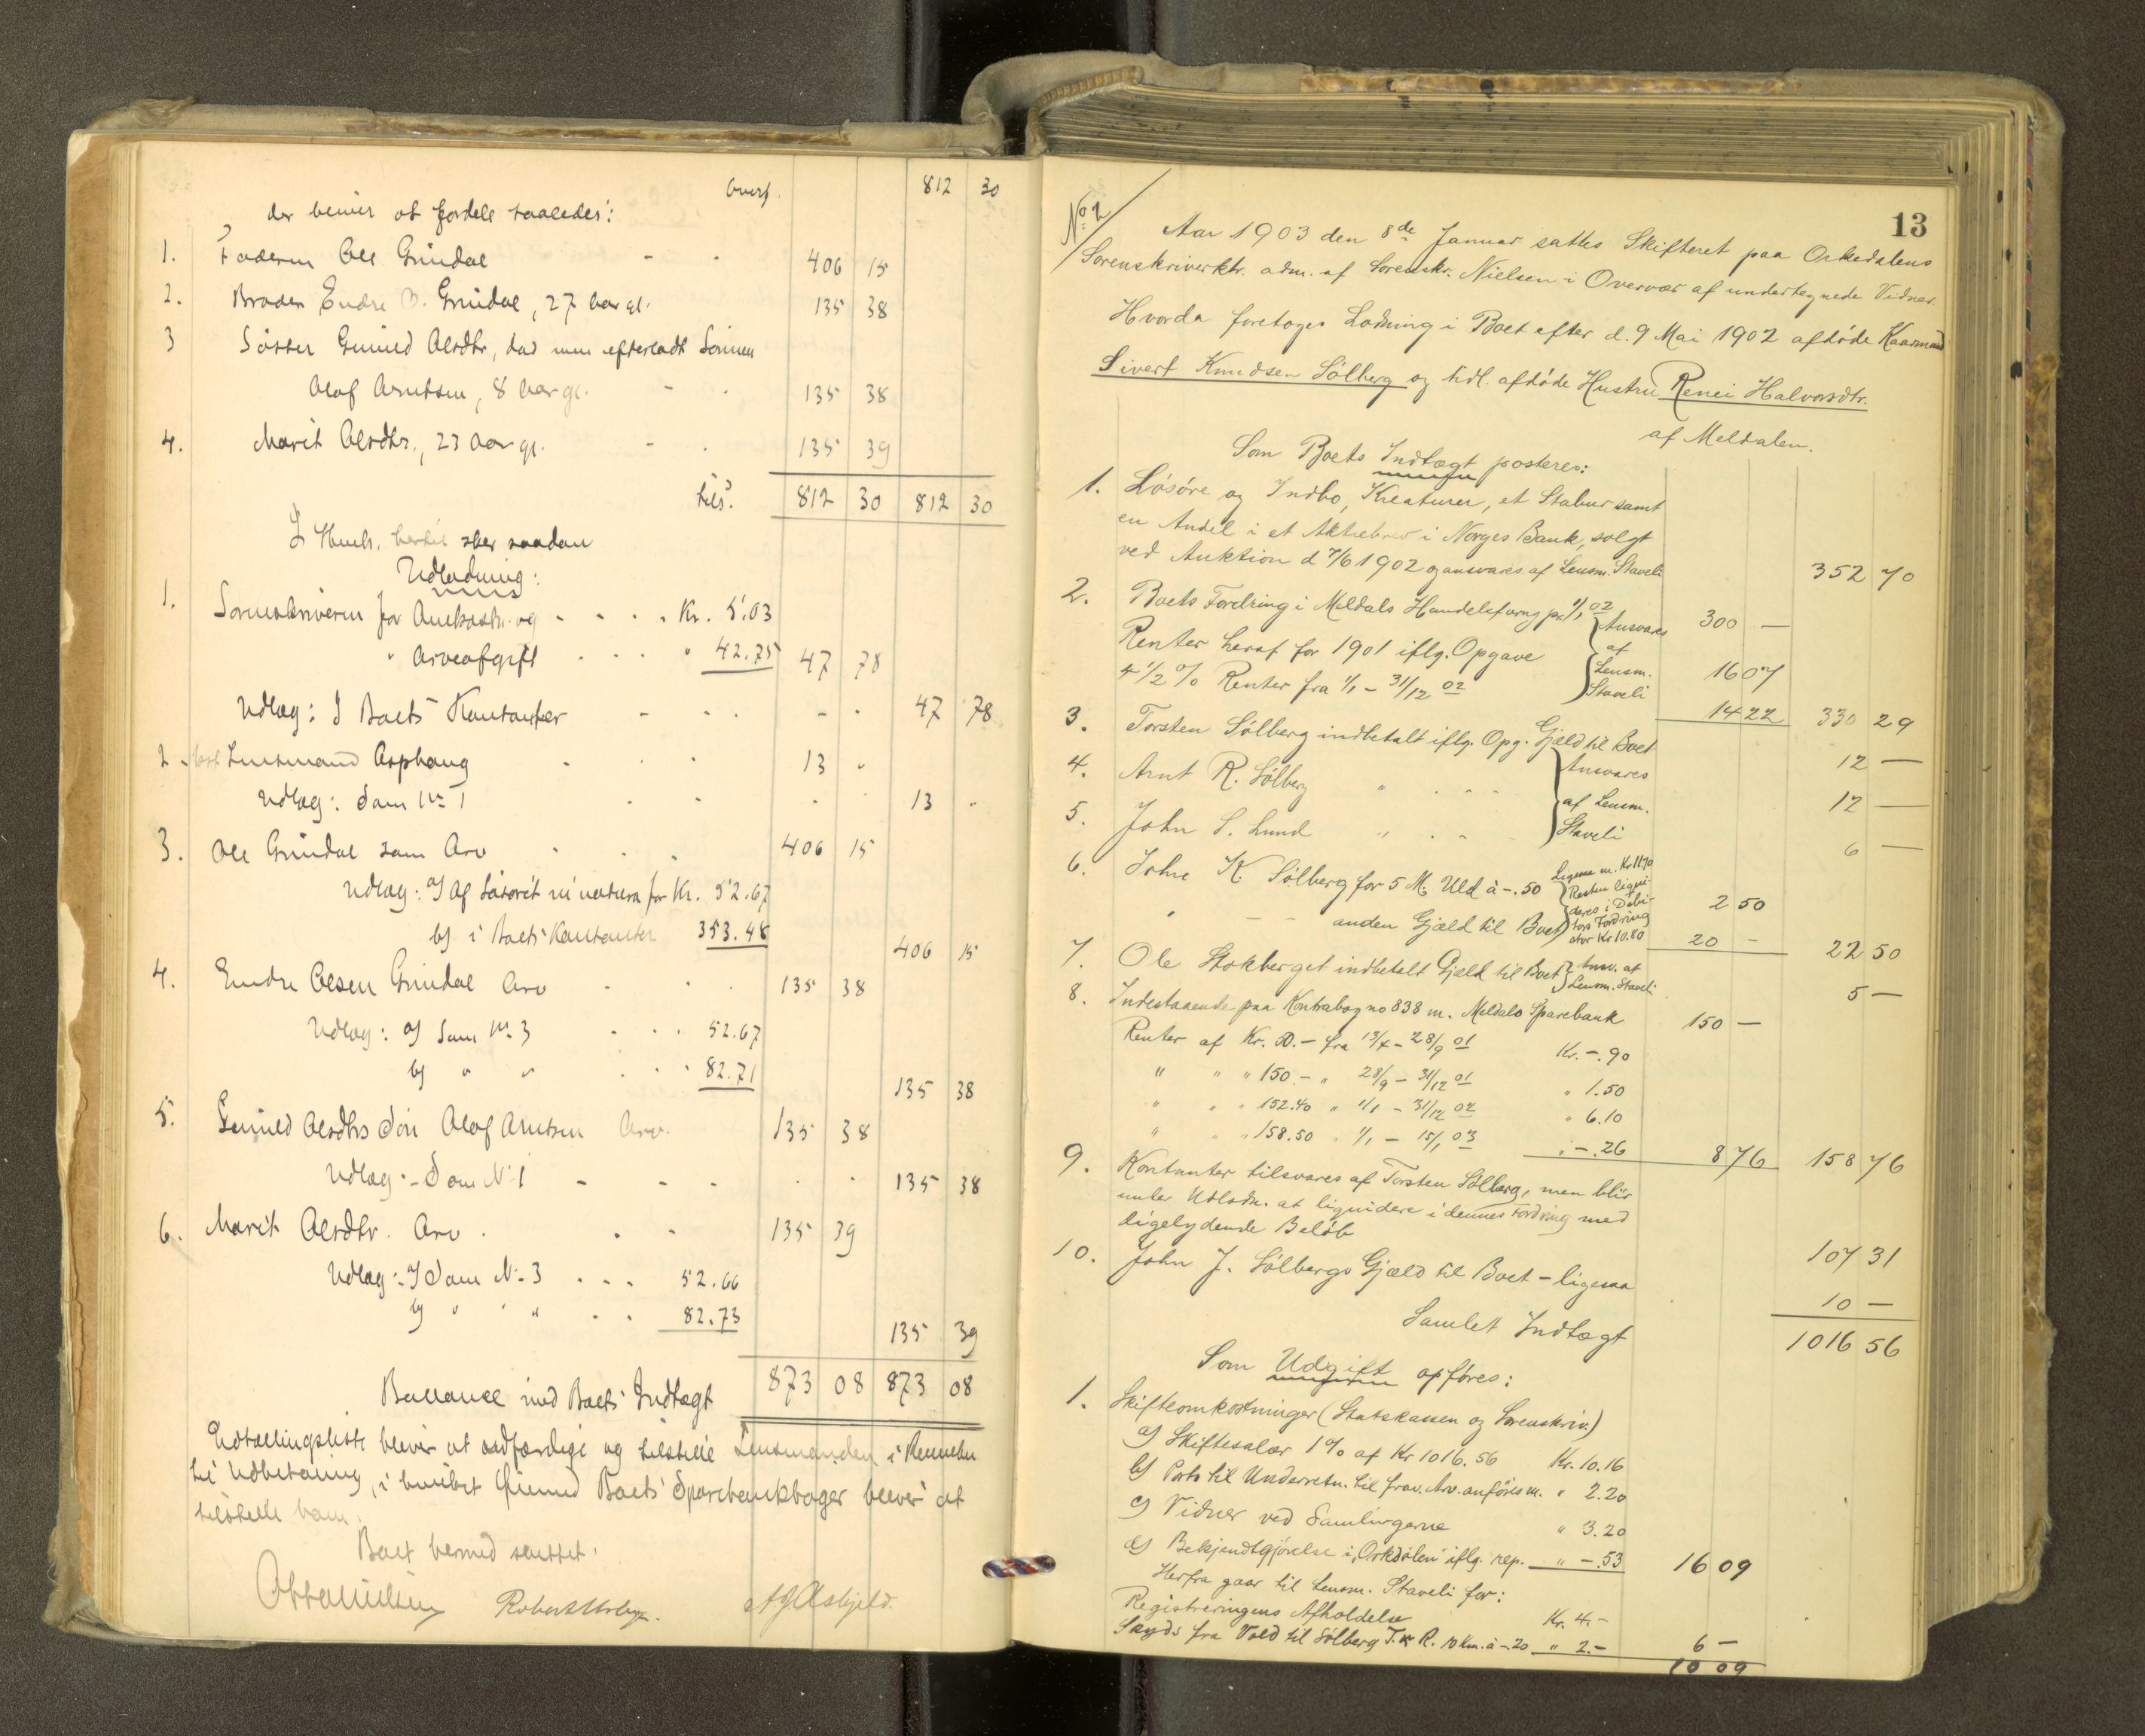 Overf. 812 30
der bliver at fordele saaledes:
1. Faderen Ole Grindal - - 406 15
2. Broder Endre O. Grindal, 27 Aar gl. 135 38
3 Søster Gunild Olsdtr, død men efterladt Sønnen
Olaf Arntsen, 8 Aar gl. - - 135 38
4. Marit Olsdtr., 23 Aar gl. - - 135 39
tils. 812 30 812 30
I Henh. hertil sker saadan
Udlodning:
1. Sorenskriveren for Omkostn. og - - - Kr. 5.03
" Arveafgift - - - " 42.75 47 78
Udlæg: I Boets Kontanter - - - - - 47 78
2 - Lensmand Asphaug - - - 13 -
Udlæg: Som No 1 - - - - 13 -
3. Ole Grindal som Arv - - - 406 15
Udlæg: a) Af Løsøret in natura for Kr. 52.67
b) i Boets Kontanter 353.48
406 15
4. Endre Olsen Grindal Arv - - - 135 38
Udlæg: a) Som No 3 - - - 52.67
b) " " - - - 82.71
135 38
5. Gunild Olsdtrs Søn Olaf Arntsen Arv. 135 38
Udlæg: - Som No 1 - - - - - 135 38
6. Marit Olsdtr. Arv. - - 135 39
Udlæg: a) Som No 3 - - - 52.66
b) " " " - - 82.73
135 39
Ballance med Boets Indtægt 873 08 873 08
Udtællingsliste bliver at udfærdige og tilstille Lensmanden i Rennebu
til Udbetaling, i hvilket Øiemed Boets Sparebankbøger bliver at
tilstille ham.
Boet hermed sluttet.
13
No 2
Aar 1903 den 8de Januar sattes Skifteret paa Orkedalens
Sorenskriverktr. adm. af Sorenskr. Nielsen i Overvær af undertegnede Vidner.
Hvorda foretoges Lodning i Boet efter d. 9 Mai 1902 afdøde Kaarmand
Sivert Knudsen Sølberg og tidl. afdøde Hustru Renei Halvorsdtr.
af Meldalen.
Som Boets Indtægt posteres:
1. Løsøre og Indbo, Kreaturer, et Stabur samt
en Andel i et Aktiebrev i Norges Bank, solgt
ved Auktion d 7/6 1902 og ansvares af Lensm. Staveli 352 70
2. Boets Fordring i Meldals Handelsforng pr. 1/1 02 } Ansvares 300 —
Renter heraf for 1901 iflg. Opgave af Lensm. 16 07
4 1/2 % Renter fra 1/1 - 31/12 02 Staveli 14 22 330 29
3. Torsten Sølberg indbetalt iflg. Opg. Gjæld til Boet 12 —
4. Arnt R. Sølberg " - - - } Ansvares 12 —
5. John S. Lund " - - af Lensm. Staveli 6 —
6. John K. Sølberg for 5 M. Uld à -.50 2 50
" - - anden Gjæld til Boet 20 - 22 50
Ligesaa m. Kr 11.70
Resten liqvi-
deres i Debi-
tors Fordring
stor Kr 10.80
7. Ole Stokberget indbetalt Gjæld til Boet } Ansv. af Lensm. Staveli 5 —
8. Indestaaende paa Kontrabog no 838 m. Meldals Sparebank 150 —
Renter af Kr. 50.- fra 13/4 - 28/9 01 Kr. -.90
" " " 150.- " 28/9 - 31/12 01 " 1.50
" " " 152.40 " 1/1 - 31/12 02 " 6.10
" " " 158.50 " 1/1 - 15/1 03 " -.26 8 76 158 76
9. Kontanter tilsvares af Torsten Sølberg, men blir
under Udlodn. at liqvidere i dennes Fordring med
ligelydende Beløb 107 31
10. John J. Sølbergs Gjæld til Boet - ligesaa 10 —
Samlet Indtægt 1016 56
Som Udgift opføres:
1. Skifteomkostninger (Statskassen og Sorenskriv.)
a) Skiftesalær 1% af Kr 1016.56 Kr. 10.16
b) Porto til Underretn. til frav. Arv. anføres m. " 2.20
c) Vidner ved Samlingerne " 3.20
d) Bekjendtgjørelse i "Orkdølen" iflg. rep. " -.53 16 09
Herfra gaar til Lensm. Staveli for:
Registreringens Afholdelse Kr. 4.-
Skyds fra Vold til Sølberg T. & R. 10 Km. à -.20 " 2.- 6 —
10 09